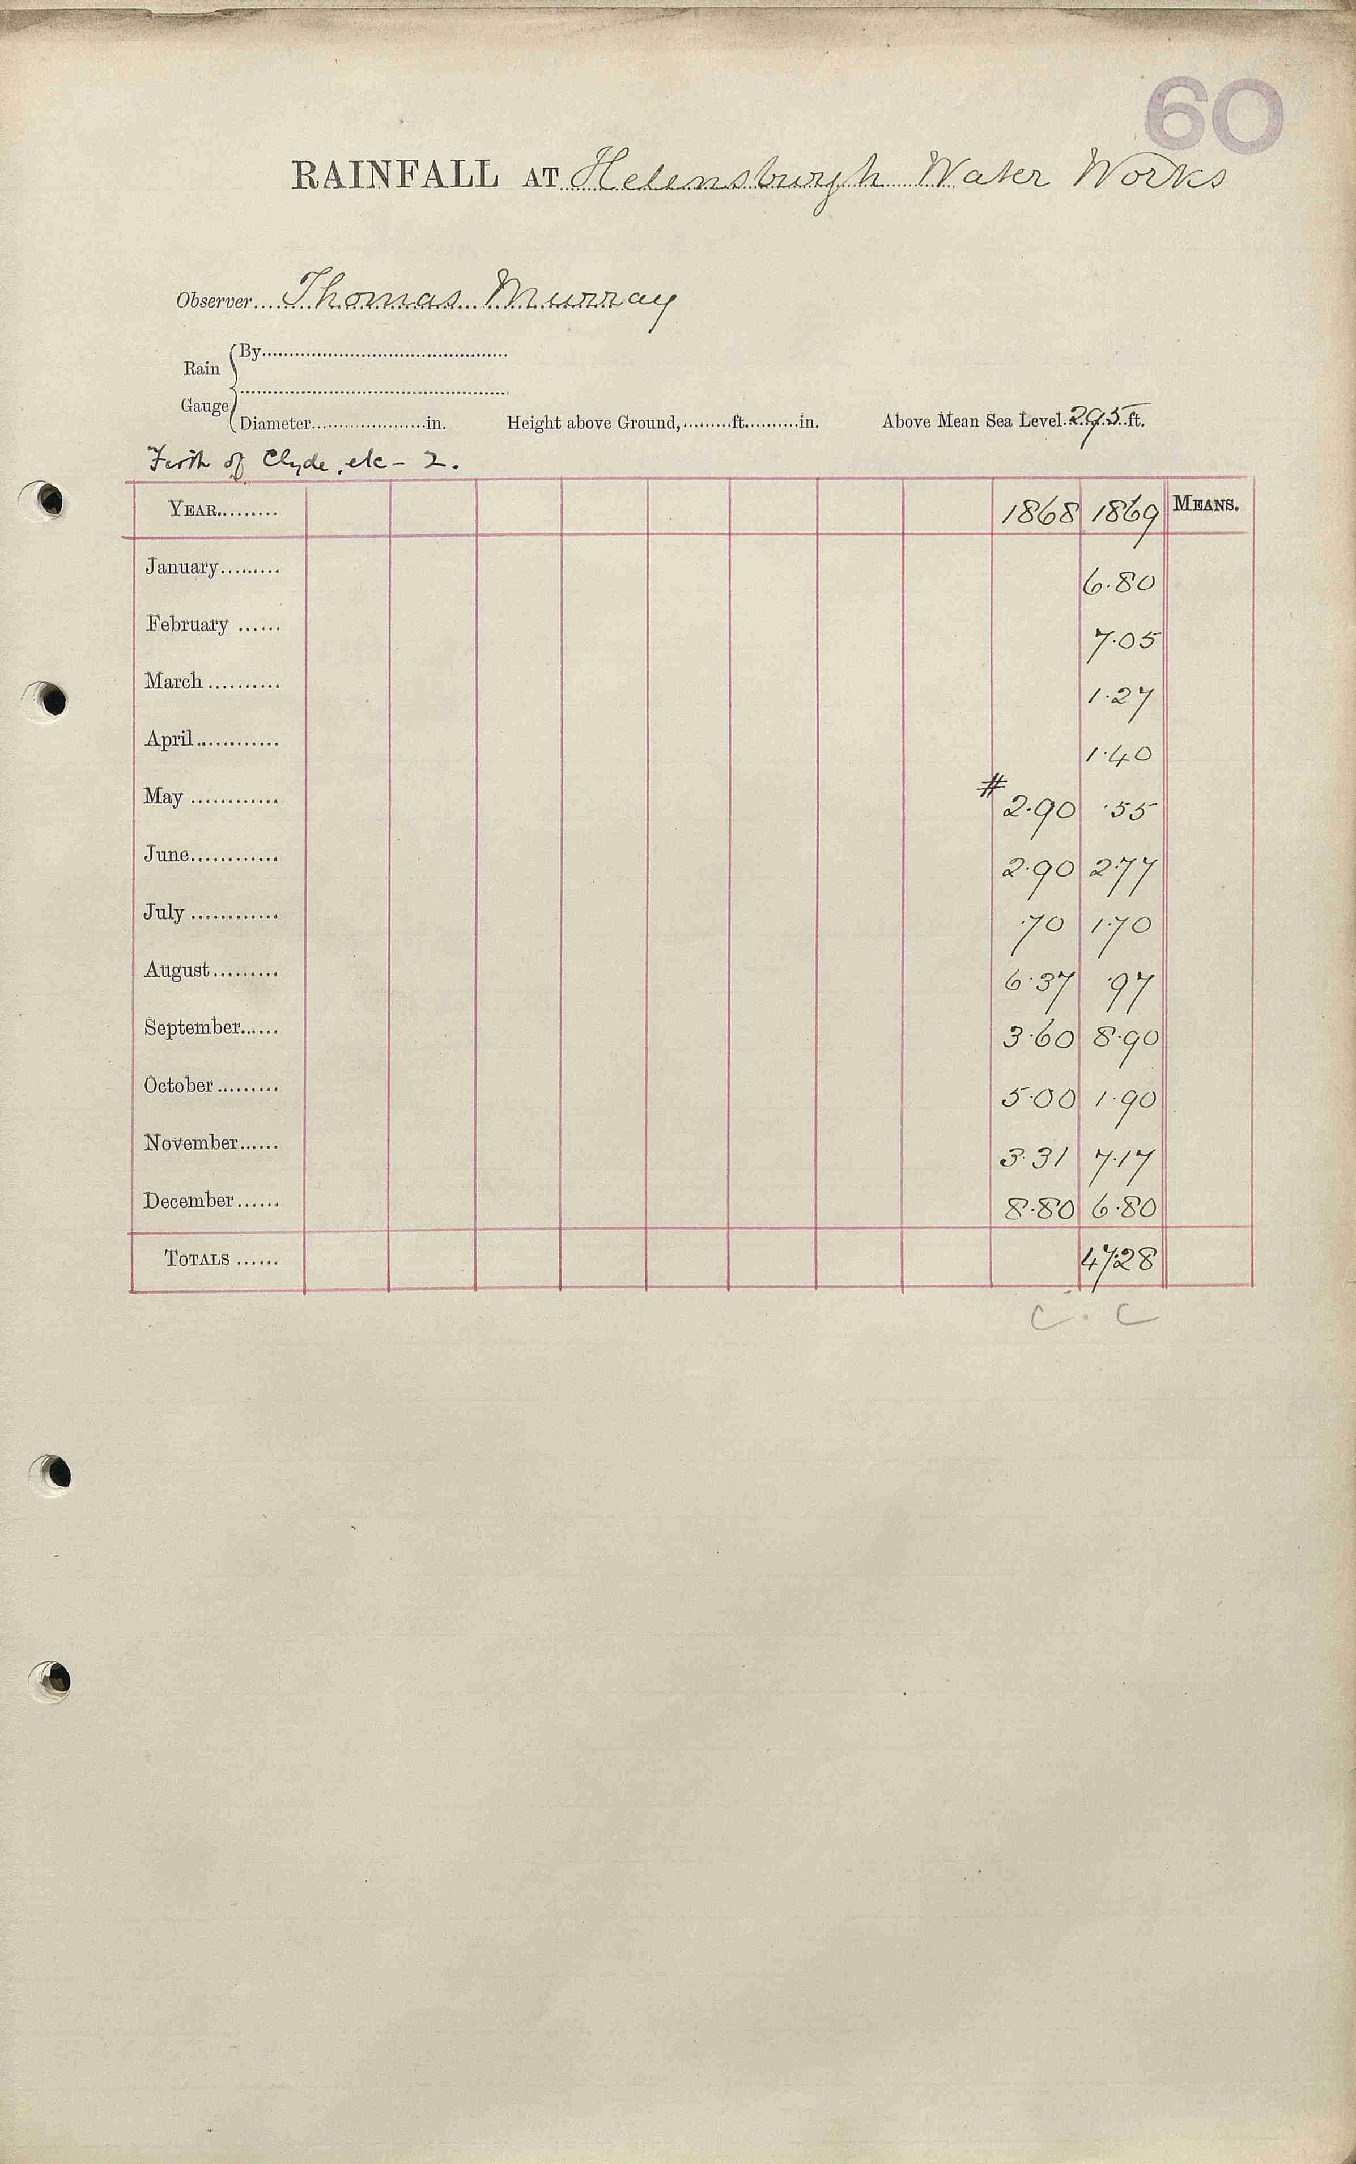 60
RAINFALL AT Helensburgh Water Works
Observer....Thomas Murray
Rain Gauge
By
Diameter in. Height above Ground, ft. in. Above Mean Sea Level 295 ft.
Firth of Clyde, etc - 2.
YEAR 1868 1869 MEANS.
January 6.80
February 7.05
March 1.27
April 1.40
May # 2.90 .55
June 2.90 2.77
July .70 1.70
August 6.37 .97
September 3.60 8.90
October 5.00 1.90
November 3.31 7.17
December 8.80 6.80
TOTALS 47.28
C. C